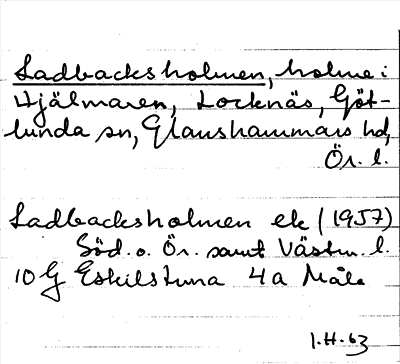 Ladbacksholmen, holme i
Hjälmaren, Locknäs, Göt-
lunda sn, Glanshammars hd,
Ör. l.
Ladbacksholmen ek (1957)
Söd. o. Ör. samt Västm. l.
10 G Eskilstuna 4 a Måle
1.H.63